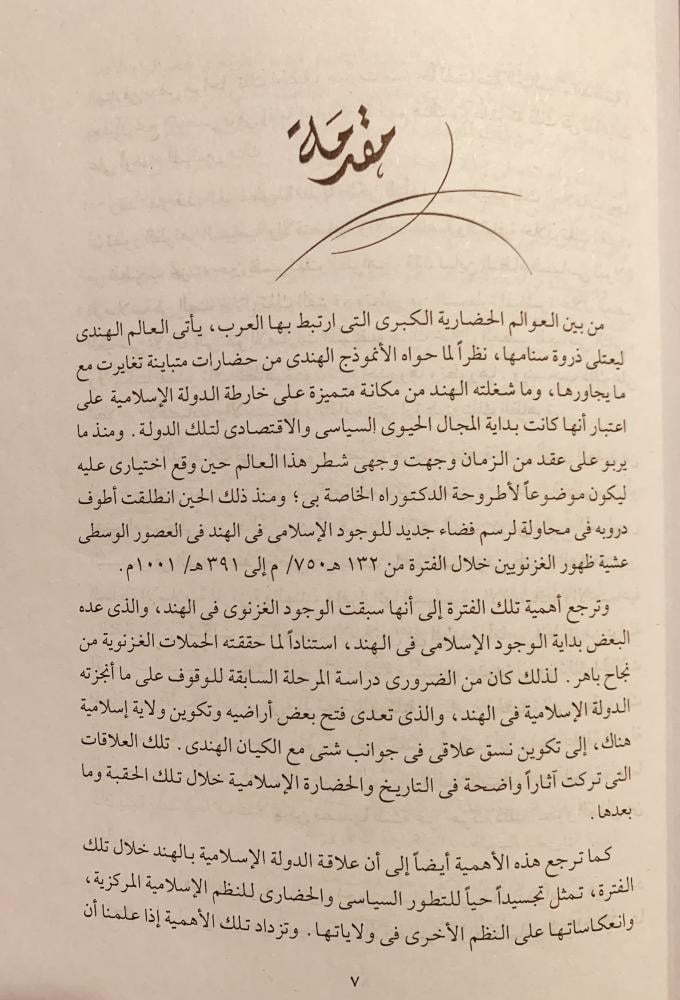 مقدمة
من بين العوالم الحضارية الكبرى التى ارتبط بها العرب، يأتى العالم الهندى
ليعتلى ذروة سنامها، نظراً لما حواه الأنموذج الهندى من حضارات متباينة تغايرت مع
ما يجاورها، وما شغلته الهند من مكانة متميزة على خارطة الدولة الإسلامية على
اعتبار أنها كانت بداية المجال الحيوى السياسى والاقتصادى لتلك الدولة. ومنذ ما
يربو على عقد من الزمان وجهت وجهى شطر هذا العالم حين وقع اختيارى عليه
ليكون موضوعاً لأطروحة الدكتوراه الخاصة بى؛ ومنذ ذلك الحين انطلقت أطوف
دروبه فى محاولة لرسم فضاء جديد للوجود الإسلامى فى الهند فى العصور الوسطى
عشية ظهور الغزنويين خلال الفترة من ١٣٢ هـ/٧٥٠م إلى ٣٩١ هـ/ ١٠٠١م.
وترجع أهمية تلك الفترة إلى أنها سبقت الوجود الغزنوى فى الهند، والذى عده
البعض بداية الوجود الإسلامى فى الهند، استناداً لما حققته الحملات الغزنوية من
نجاح باهر. لذلك كان من الضرورى دراسة المرحلة السابقة للوقوف على ما أنجزته
الدولة الإسلامية فى الهند، والذى تعدى فتح بعض أراضيه وتكوين ولاية إسلامية
هناك، إلى تكوين نسق علاقى فى جوانب شتى مع الكيان الهندى. تلك العلاقات
التى تركت آثاراً واضحة فى التاريخ والحضارة الإسلامية خلال تلك الحقبة وما
بعدها.
كما ترجع هذه الأهمية أيضاً إلى أن علاقة الدولة الإسلامية بالهند خلال تلك
الفترة، تمثل تجسيداً حياً للتطور السياسى والحضارى للنظم الإسلامية المركزية،
وانعكاساتها على النظم الأخرى فى ولاياتها. وتزداد تلك الأهمية إذا علمنا أن
٧